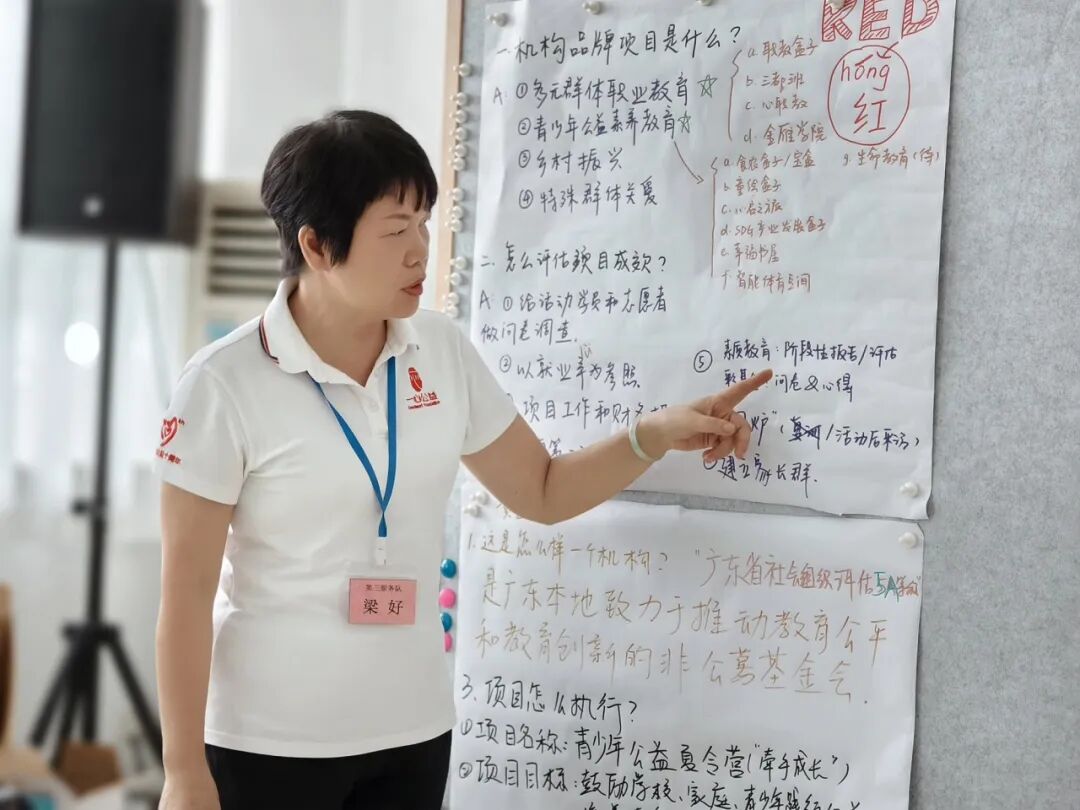 RED
hóng
红
一.机构品牌项目是什么?
A: ①多元群体职业教育☆
②青少年公益素养教育☆
③乡村振兴
④特殊群体关爱
a. 职教盒子
b. 三都班
c. 心职教
d. 金雁学院
a. 食农盒子/宝盒
b. 童绘盒子
d. SDG
e. 幸福书屋
f. 智能体育空间
g. 生命教育(待)
二. 怎么评估项目成效?
A: ①给活动学员和志愿者
做问卷调查.
②以就业率为参照.
项目工作和财务
⑤ 素质教育:阶段性报告/评估
问卷&心得
/活动后采访)
建立家长群.
1. 这是怎么样一个机构? "广东省社会组织评估5A等级"
是广东本地致力于推动教育公平
和教育创新的非公募基金会.
3. 项目怎么执行?
①项目名称:青少年公益夏令营("牵手成长")
②项目目标:鼓励学校、家庭、青少年
一心公益
第三服务队
梁 好